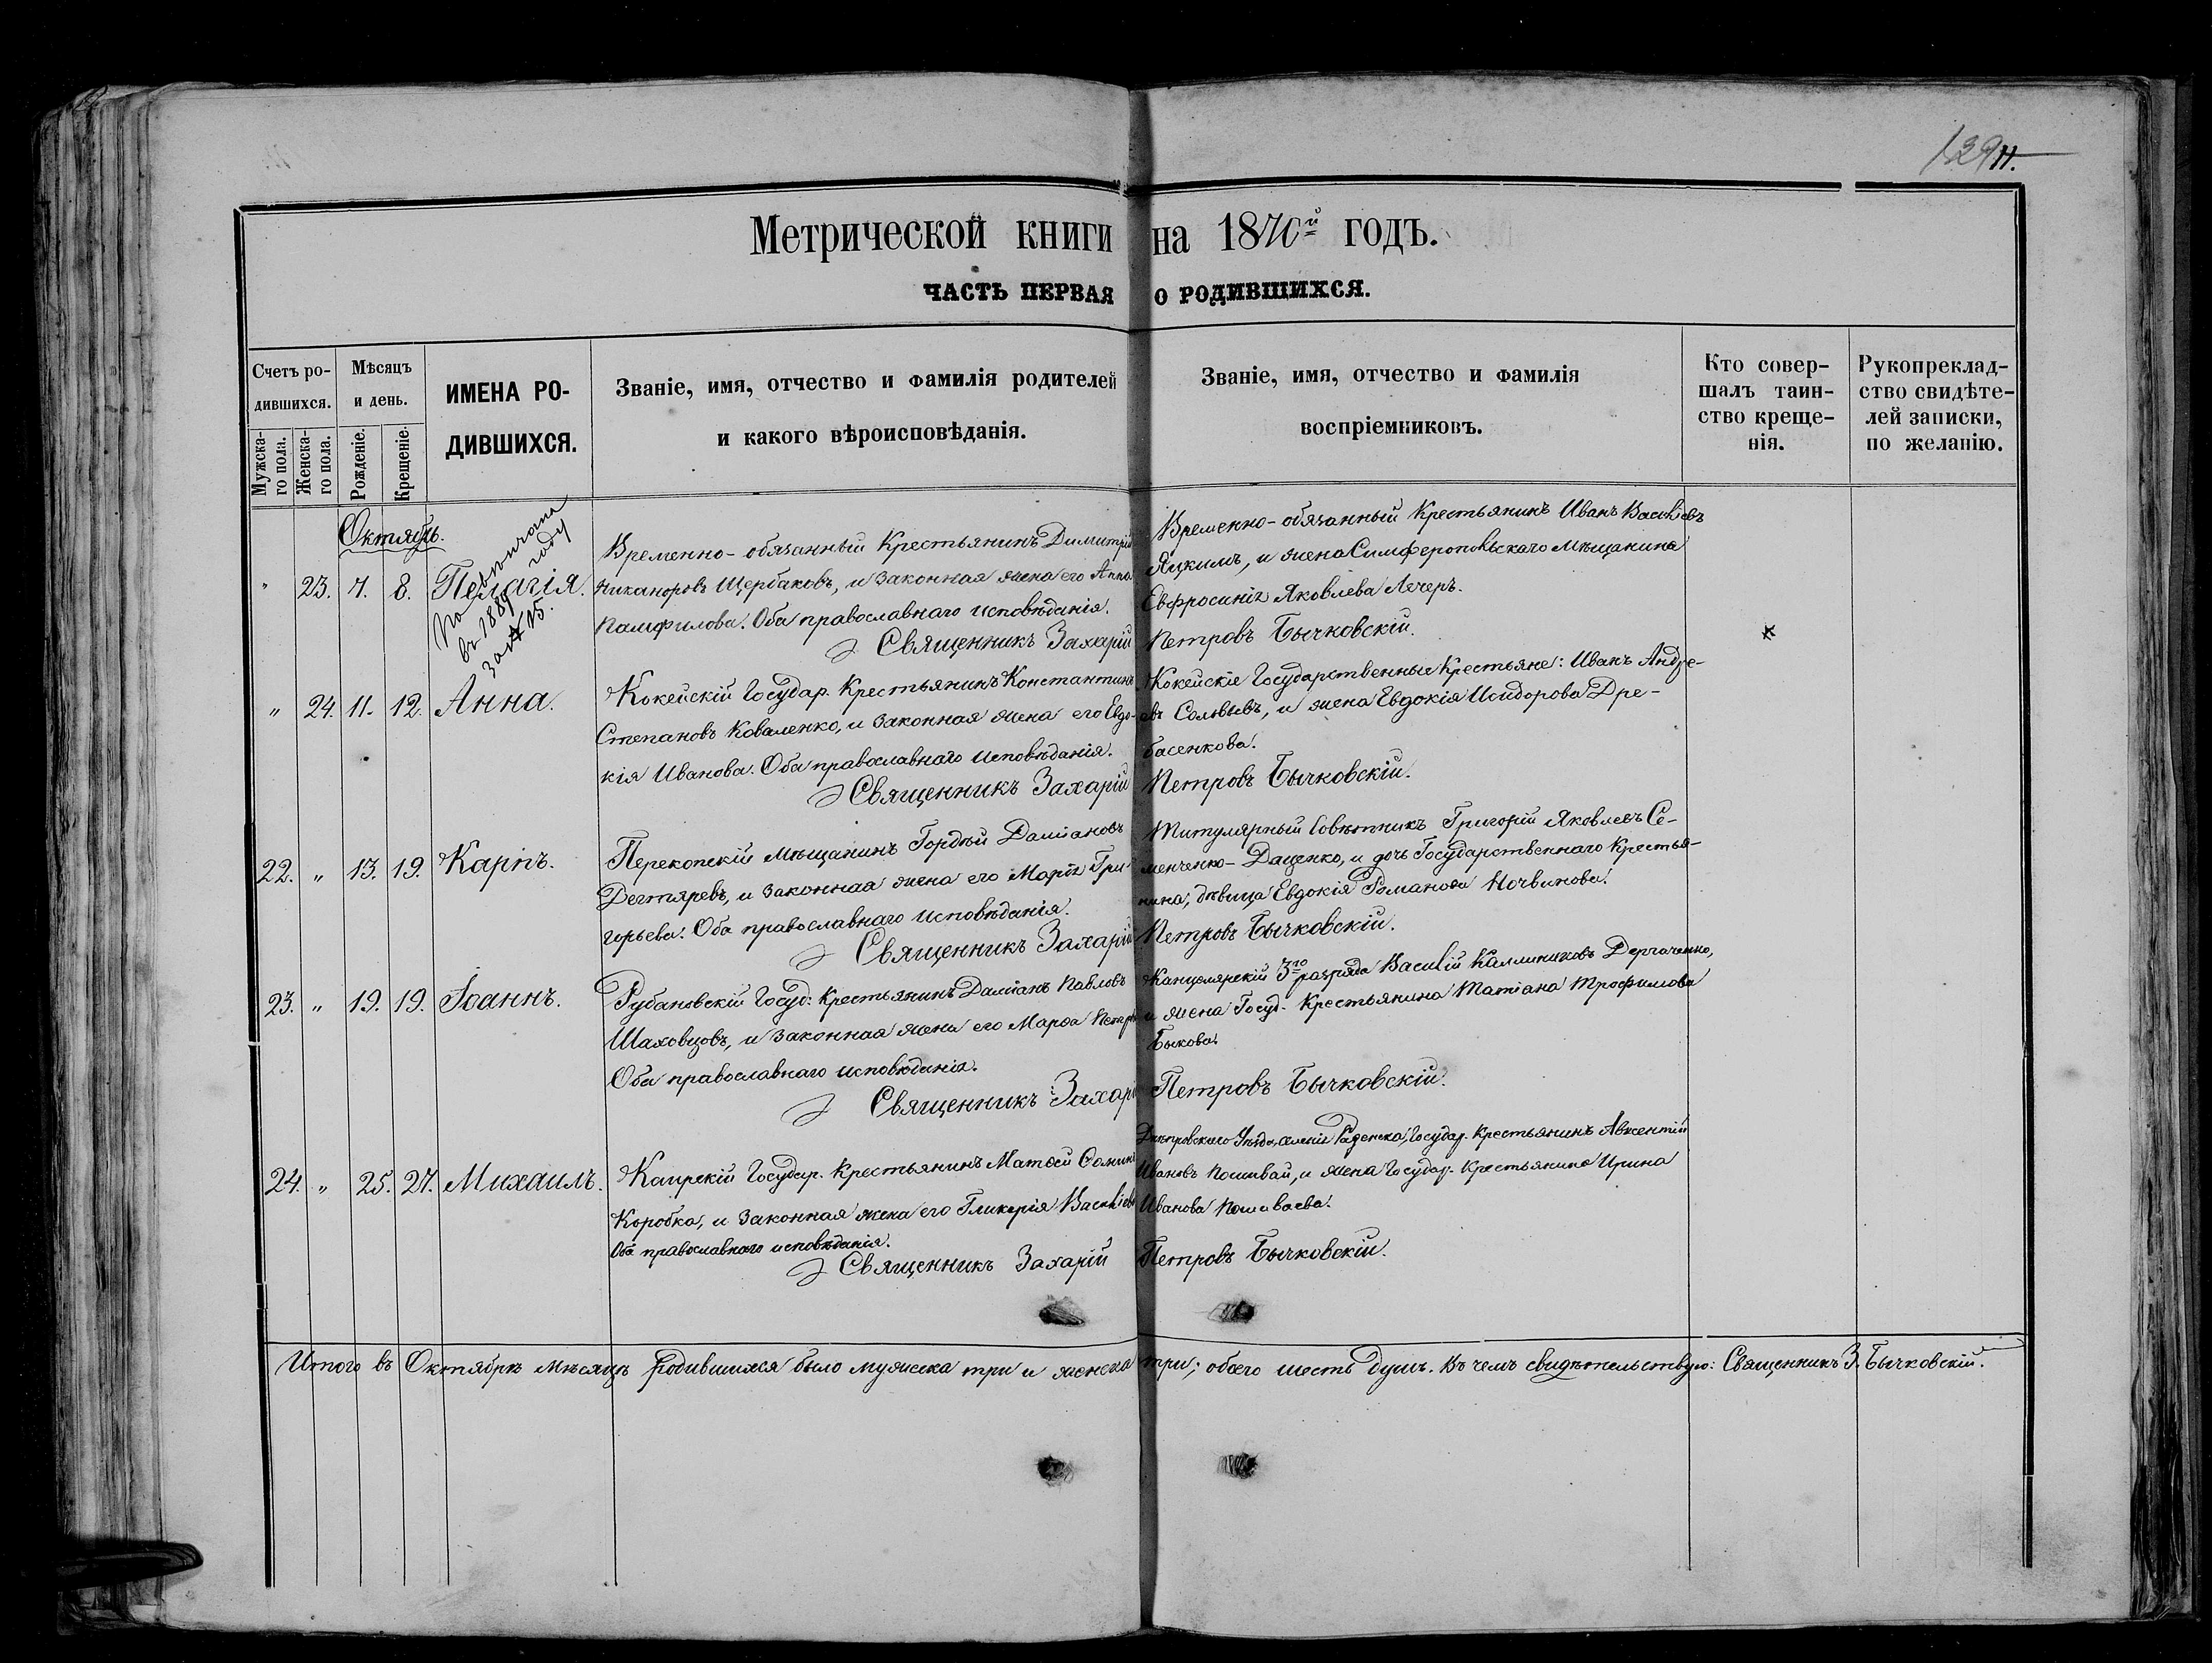 139
Метрической книги на 1870й годъ.
ЧАСТЬ ПЕРВАЯ О РОДИВШИХСЯ.
Счетъ ро-
дившихся.
Мужска-
го пола.
Женска-
го пола.
Мѣсяцъ
и день.
Рожденіе.
Крещеніе.
ИМЕНА РО-
ДИВШИХСЯ.
Званіе, имя, отчество и фамилія родителей
и какого вѣроисповѣданія.
Званіе, имя, отчество и фамилія
воспріемниковъ.
Кто совер-
шалъ таин-
ство креще-
нія.
Рукопреклад-
ство свидѣте-
лей записки,
по желанію.
Октябрь.
" 23. 7. 8. Пелагія.
Повѣнчана
въ 1889 году
за № 15.
Временно-обязанный Крестьянинъ Димитрій
Никаноровъ Щербаковъ, и законная жена его Анна
Памфилова. Оба православнаго исповѣданія.
Временно-обязанный Крестьянинъ Иванъ Васильевъ
Яцкимъ, и жена Симферопольскаго Мѣщанина
Евфросинія Яковлева Лечеръ.
Священникъ Захарій Петровъ Бычковскій.
" 24. 11. 12. Анна.
Кокейскій Государ. Крестьянинъ Константинъ
Степановъ Коваленко, и законная жена его Евдо-
кія Иванова. Оба православнаго исповѣданія.
Кокейскіе Государственные Крестьяне: Иванъ Андре-
евъ Сольвывъ, и жена Евдокія Исидорова Дре-
басенкова.
Священникъ Захарій Петровъ Бычковскій.
22. " 13. 19. Карпъ.
Перекопскій Мѣщанинъ Гордѣй Даміановъ
Дегтяревъ, и законная жена его Марія Гри-
горьева. Оба православнаго исповѣданія.
Титулярный Совѣтникъ Григорій Яковлевъ Се-
менченко-Даценко, и дочь Государственнаго Крестья-
нина, дѣвица Евдокія Романова Ночвинова.
Священникъ Захарій Петровъ Бычковскій.
23. " 19. 19. Іоаннъ.
Рубановскій Госуд: Крестьянинъ Даміанъ Павловъ
Шаховцовъ, и законная жена его Марѳа Петр
Оба православнаго исповѣданія.
Канцелярскій 3го разряда Василій Каллиниковъ Дергаченко,
и жена Госуд. Крестьянина Татіана Трофимова
Быкова.
Священникъ Захарій Петровъ Бычковскій.
24. " 25. 27. Михаилъ.
Каирскій Государ. Крестьянинъ Матѳей Ѳоминъ
Коробка, и законная жена его Гликерія Васильева
Оба православнаго исповѣданія.
Днѣпровскаго Уѣзда, селенія Раденска, Государ. Крестьянинъ Авксентій
Ивановъ Пошивай, и жена Государ. Крестьянина Ирина
Иванова Пошиваева.
Священникъ Захарій Петровъ Бычковскій.
Итого въ Октябрѣ мѣсяцѣ родившихся было мужеска три и женска три; обоего шесть душъ. Въ чемъ свидѣтельствую: Священникъ З. Бычковскій.